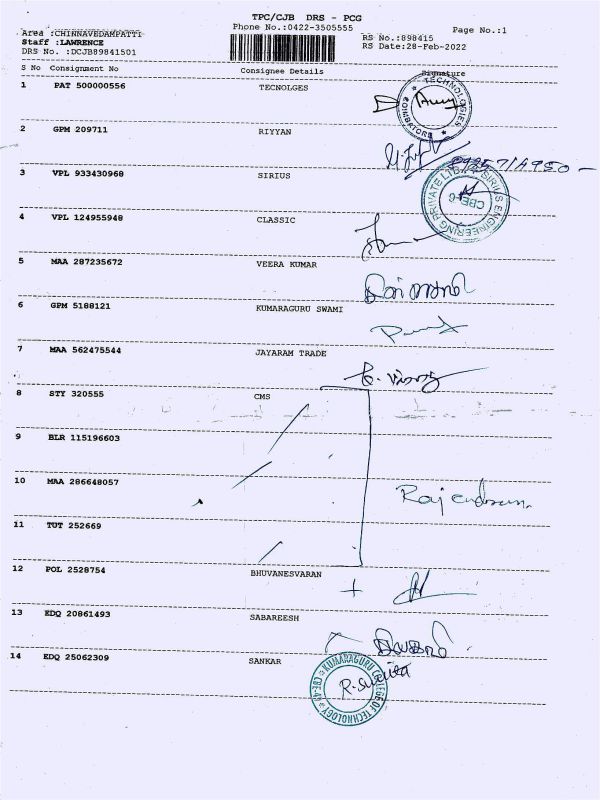 TPC/CJB DRS - PCG
Phone No.:0422-3505555
Page No.:1
Area :CHINNAVEDAMPATTI
RS No.:898415
Staff :LAWRENCE
RS Date:28-Feb-2022
DRS No. :DCJB89841501
S No Consignment No Consignee Details Signature
1 PAT 500000556 TECNOLGES
TECHNOLOGIES
COIMBATORE
2 GPM 209711 RIYYAN
3 VPL 933430968 SIRIUS
SIRIUS ENGINEERING PRIVATE
CBE-6
4 VPL 124955948 CLASSIC
5 MAA 287235672 VEERA KUMAR
6 GPM 5188121 KUMARAGURU SWAMI
7 MAA 562475544 JAYARAM TRADE
8 STY 320555 CMS
9 BLR 115196603
10 MAA 286648057
Rajendran.
11 TUT 252669
12 POL 2528754 BHUVANESVARAN
13 EDQ 20861493 SABAREESH
14 EDQ 25062309 SANKAR
KUMARAGURU COLLEGE OF TECHNOLOGY